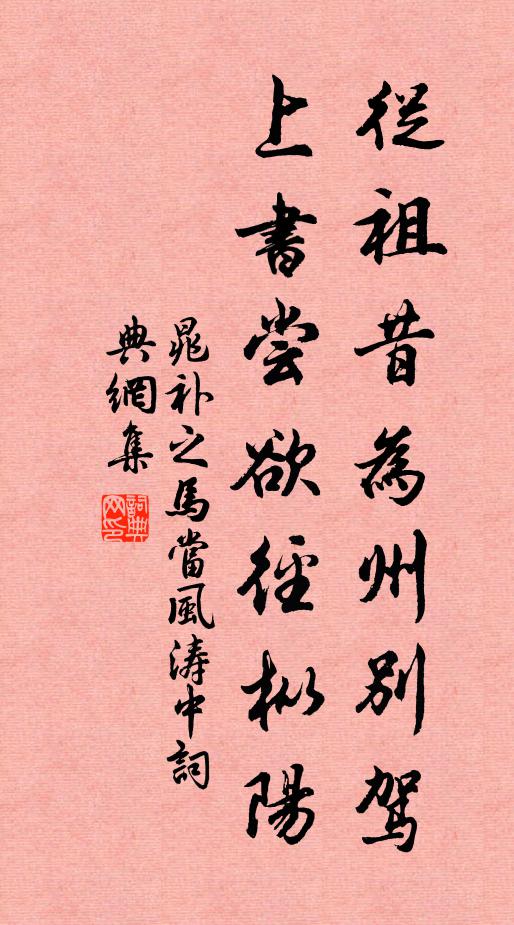 從祖昔為州別駕
上書嘗欲徑樅陽
晁补之馬當風濤中詞
典網集
詞典网印